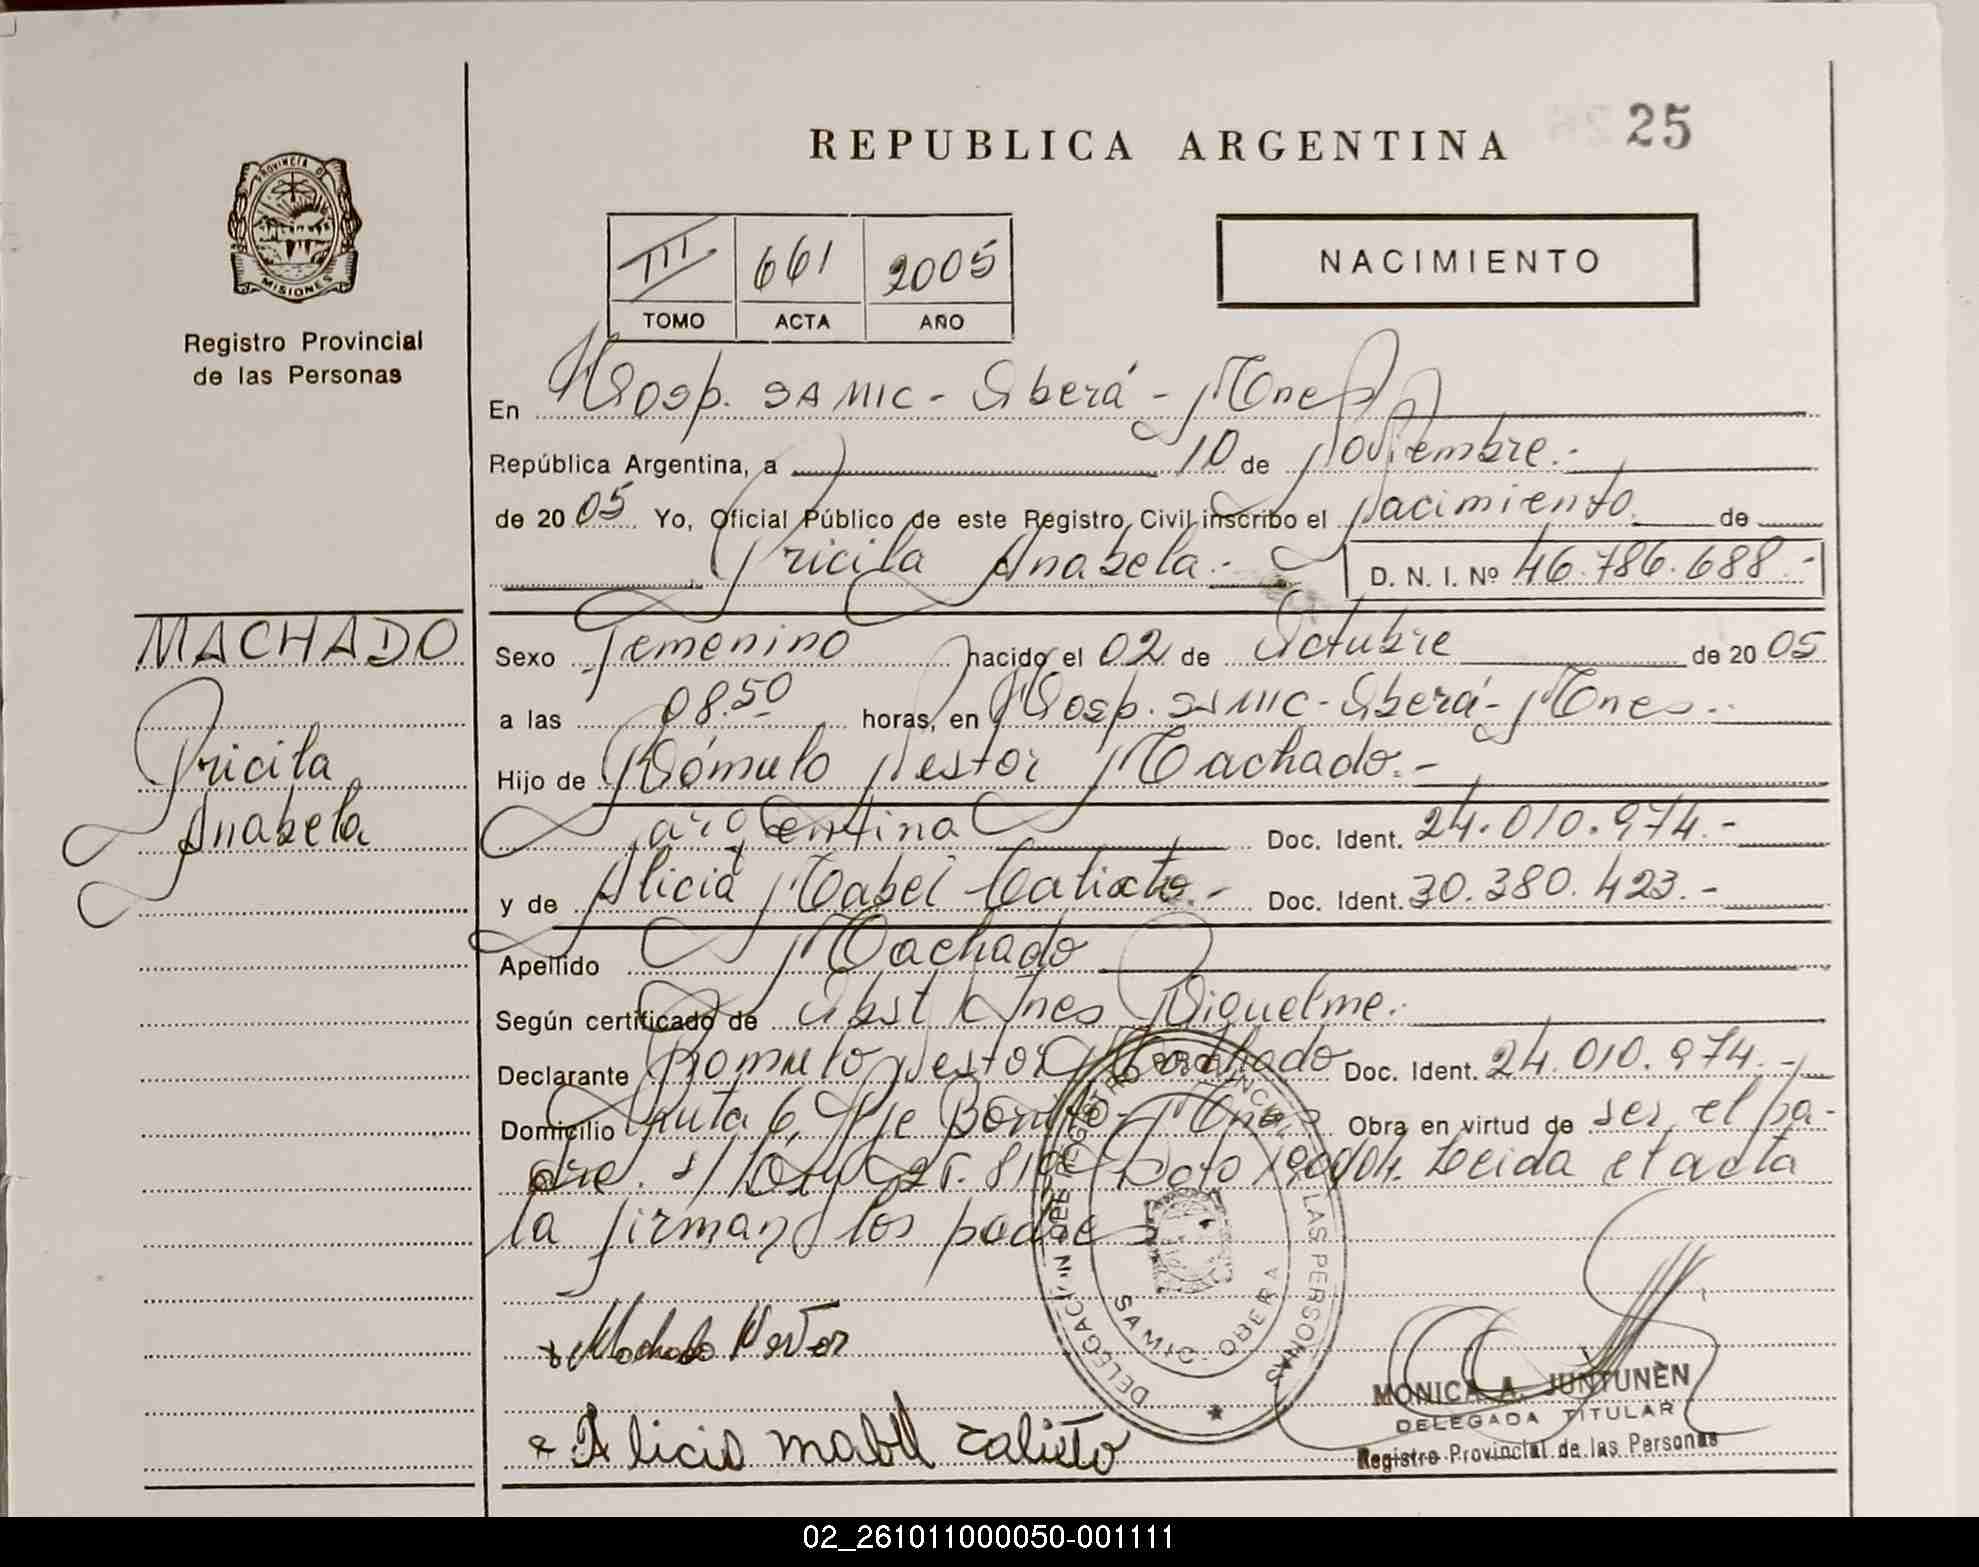 25
REPUBLICA ARGENTINA
PROVINCIA D
MISIONES
Registro Provincial
de las Personas
III 661 2005
TOMO ACTA AÑO
NACIMIENTO
En Hosp. SAMIC - Oberá - Mnes
República Argentina, a 10 de Noviembre.-
de 2005 Yo, Oficial Público de este Registro Civil inscribo el Nacimiento de
Pricila Anabela.- D. N. I. Nº 46.786.688.-
MACHADO
Pricila
Anabela
Sexo Femenino nacido el 02 de Octubre de 2005
a las 08.50 horas, en Hosp. SAMIC - Oberá - Mnes.-
Hijo de Rómulo Nestor Machado.-
argentina Doc. Ident. 24.010.974.-
y de Alicia Mabel Calixto.- Doc. Ident. 30.380.423.-
Apellido Machado
Según certificado de Obst Ines Riquelme.-
Declarante Romulo Nestor Machado Doc. Ident. 24.010.974.-
Domicilio Ruta 6, Pje Bonito - Mnes Obra en virtud de ser el pa-
dre. s/ Leida el acta
la firman los padres
Machado Nestor
Alicia mabel calixto
DELEGACION DEL REGISTRO PROVINCIAL DE LAS PERSONAS
SAMIC - OBERA
MONICA A. JUNTUNEN
DELEGADA TITULAR
Registro Provincial de las Personas
02_261011000050-001111